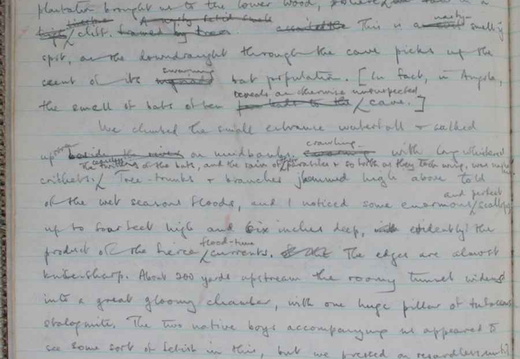 plantation brought us to the lower wood, where
cliff. This is a nasty smelly
spot, as the downdraught through the cave picks up the
scent of its swarming bat population. [In fact, in Angola,
the smell of bats often reveals an otherwise unsuspected cave.]
We climbed the small entrance waterfall & walked
up on mudbanks crawling with long-whiskered
crickets. of the bats, and the rain of as they took wing,
Tree-trunks & branches jammed high above told
of the wet seasons floods, and I noticed some enormous and perfect scallops
up to four feet high and six inches deep, evidently the
product of the fierce flood-time currents. The edges are almost
knifesharp. About 200 yards upstream the roomy tunnel widens
into a great gloomy chamber, with one huge pillar of
stalagmite. The two native boys accompanying us appeared to
see some sort of fetish in this, but we pressed on regardless